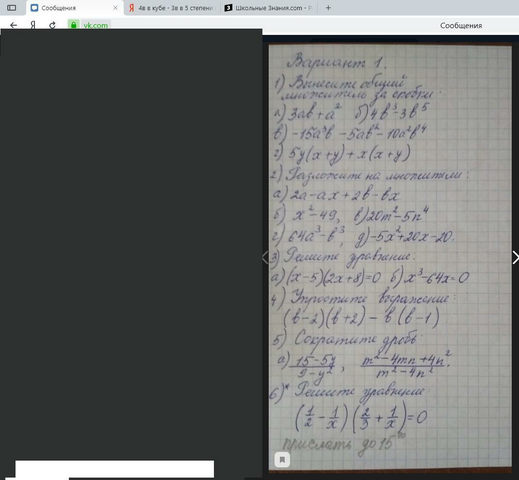 Сообщения
4в в кубе - 3в в 5 степени
Школьные Знания.com - Р
vk.com
Сообщения
Вариант 1.
1) Вынесите общий
множитель за скобки:
а) 3ab + a² б) 4b³ - 3b⁵
в) -15a³b - 5ab² - 10a²b⁴
г) 5y(x+y) + x(x+y)
2) Разложите на множители:
а) 2a - ax + 2b - bx
б) x² - 49, в) 20m² - 5n⁴
г) 64a³ - b³, д) -5x² + 20x - 20.
3) Решите уравнение:
а) (x-5)(2x+8)=0 б) x³ - 64x = 0
4) Упростите выражение:
(b-2)(b+2) - b(b-1)
5) Сократите дробь:
а) (15-5y)/(9-y²), (m²-4mn+4n²)/(m²-4n²).
6)* Решите уравнение
(1/2 - 1/x)(2/3 + 1/x) = 0
прислать до 15⁰⁰